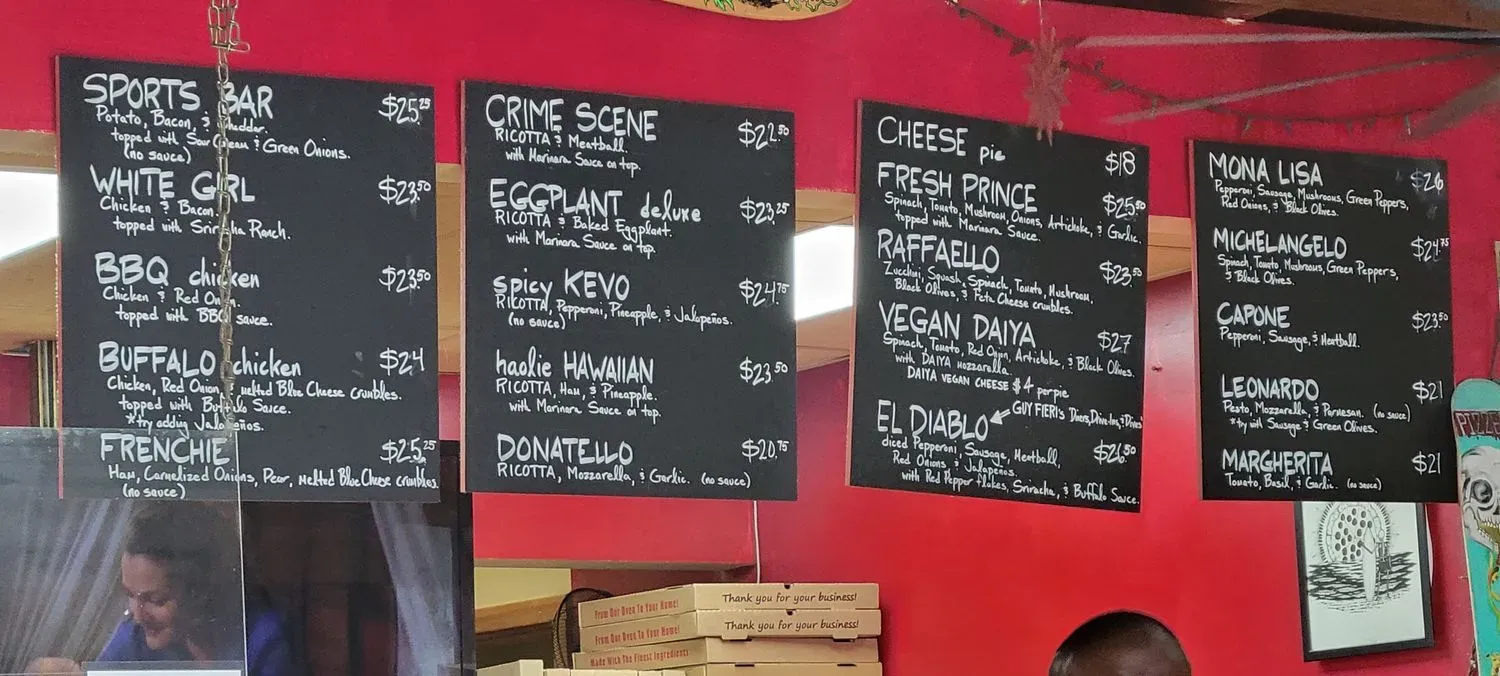 SPORTS BAR $25.25
Potato, Bacon, & Cheddar.
topped with Sour Cream & Green Onions.
(no sauce)
WHITE GIRL $23.50
Chicken & Bacon
topped with Sriracha Ranch.
BBQ chicken $23.50
Chicken & Red Onion
topped with BBQ sauce.
BUFFALO chicken $24
Chicken, Red Onion, melted Blue Cheese crumbles.
topped with Buffalo Sauce.
*try adding Jalapeños.
FRENCHIE $25.25
Ham, Carmelized Onions, Pear, melted Blue Cheese crumbles.
(no sauce)
CRIME SCENE $22.50
RICOTTA & Meatball.
with Marinara Sauce on top.
EGGPLANT deluxe $23.25
RICOTTA & Baked Eggplant.
with Marinara Sauce on top.
spicy KEVO $24.75
RICOTTA, Pepperoni, Pineapple, & Jalapeños.
(no sauce)
haolie HAWAIIAN $23.50
RICOTTA, Ham, & Pineapple.
with Marinara Sauce on top.
DONATELLO $20.75
RICOTTA, Mozzarella, & Garlic. (no sauce)
CHEESE pie $18
FRESH PRINCE $25.50
Spinach, Tomato, Mushroom, Onions, Artichoke, & Garlic.
topped with Marinara Sauce.
RAFFAELLO $23.50
Zucchini, Squash, Spinach, Tomato, Mushroom,
Black Olives, & Feta Cheese crumbles.
VEGAN DAIYA $27
Spinach, Tomato, Red Onion, Artichoke, & Black Olives.
with DAIYA mozzarella.
DAIYA VEGAN CHEESE $4 per pie
EL DIABLO ← GUY FIERI's Diners, Drive-Ins, & Dives
diced Pepperoni, Sausage, Meatball, $26.50
Red Onions & Jalapenos.
with Red Pepper flakes, Sriracha, & Buffalo Sauce.
MONA LISA $26
Pepperoni, Sausage, Mushrooms, Green Peppers,
Red Onions, & Black Olives.
MICHELANGELO $24.75
Spinach, Tomato, Mushrooms, Green Peppers,
& Black Olives.
CAPONE $23.50
Pepperoni, Sausage, & Meatball.
LEONARDO $21
Pesto, Mozzarella, & Parmesan. (no sauce)
*try with Sausage & Green Olives.
MARGHERITA $21
Tomato, Basil, & Garlic. (no sauce)
From Our Oven To Your Home! Thank you for your business!
From Our Oven To Your Home! Thank you for your business!
Made With The Finest Ingredients